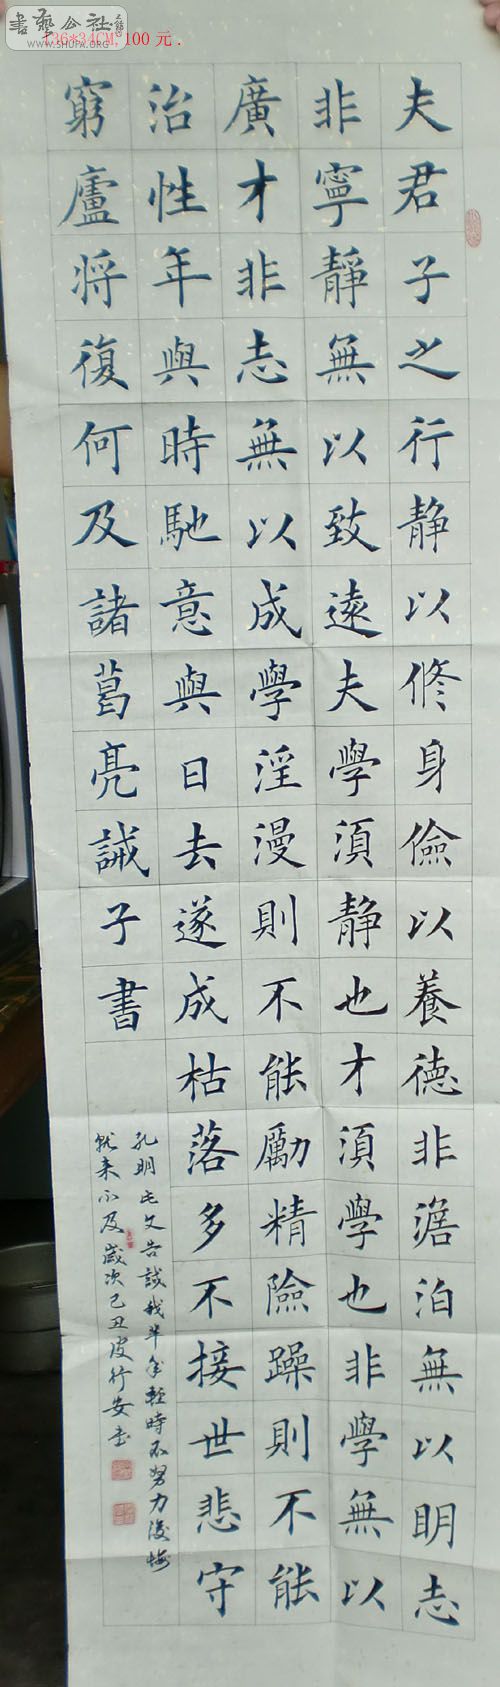 書藝公社
WWW.SHUFA.ORG
136*34CM,100元.
夫君子之行静以修身儉以養德非澹泊無以明志
非寧靜無以致遠夫學須静也才須學也非學無以
廣才非志無以成學淫漫則不能勵精險躁則不能
治性年與時馳意與日去遂成枯落多不接世悲守
窮廬將復何及諸葛亮誡子書
孔明此文告誡我年輕時不努力後悔
就来不及歲次己丑皮行安書